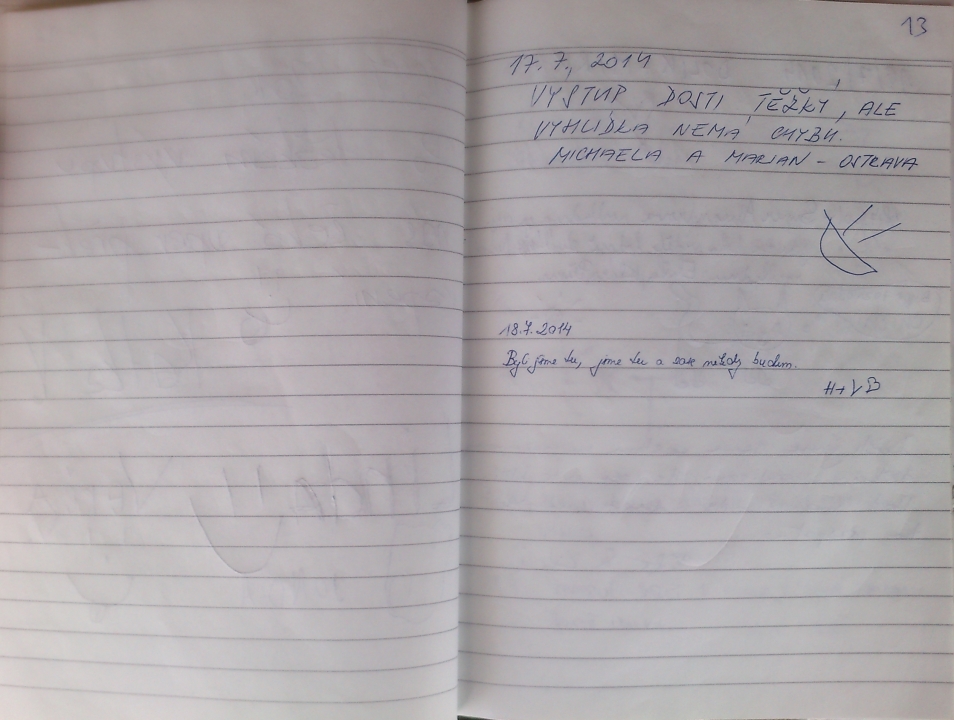 13
17. 7., 2014
VÝSTUP DOSTI TĚŽKÝ, ALE
VYHLÍDKA NEMÁ CHYBU.
MICHAELA A MARIAN - OSTRAVA
18.7.2014
Byli jsme tu, jsme tu a zase někdy budem.
H+VB